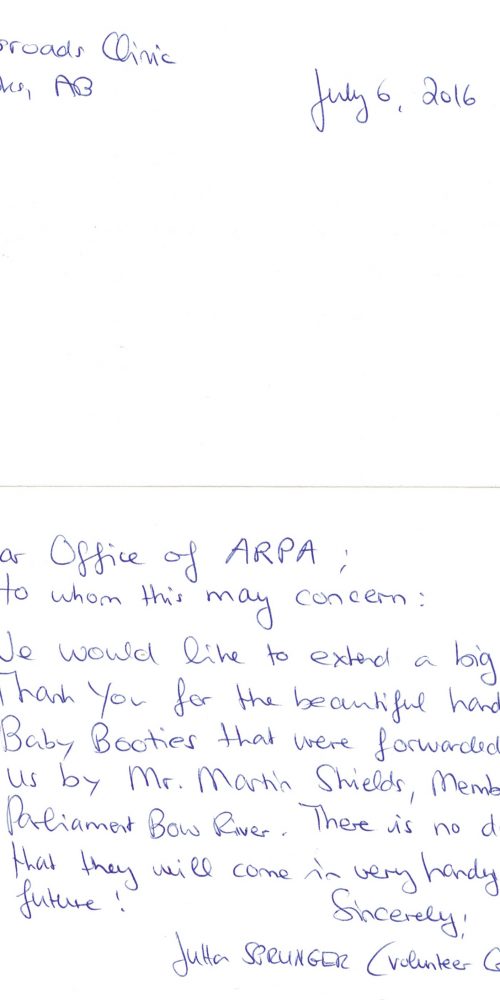 sroads Clinic
ks, AB
July 6, 2016
ar Office of ARPA ;
to whom this may concern :
We would like to extend a big
Thank You for the beautiful hand
Baby Booties that were forwarded
us by Mr. Martin Shields, Memb
Parliament Bow River. There is no d
that they will come in very handy
future !
Sincerely,
Jutta SPRUNGER (volunteer C